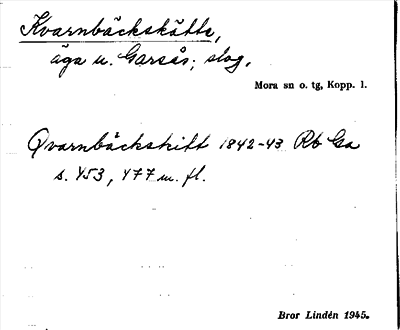 Kvarnbäckskätte,
äga u. Garsås; slog.
Mora sn o. tg, Kopp. l.
Qvarnbäckskitt 1842-43 Rb Ga
s. 453, 477 m. fl.
Bror Lindén 1945.